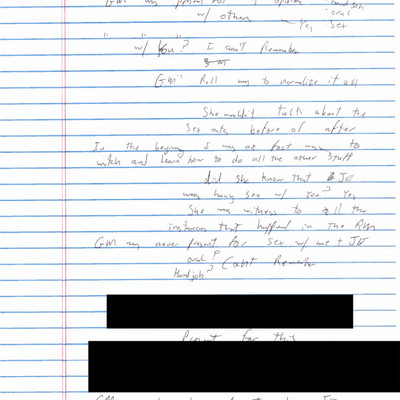 GM was present for
w/ others
Yes, sex
" " w/ you"? I can't Remember
GM's Roll was to normalize it all
She wouldn't talk about the
Sex acts before or after
In the beginning I was on foot to
watch and learn how to do all the other stuff
did she know that JE
was having sex w/ you? Yes
She was witness to all the
instances that happened in the Rm
GM was never present for sex w/ me + JE
oral?
Handjob? Can't Remember
Present for this
GM